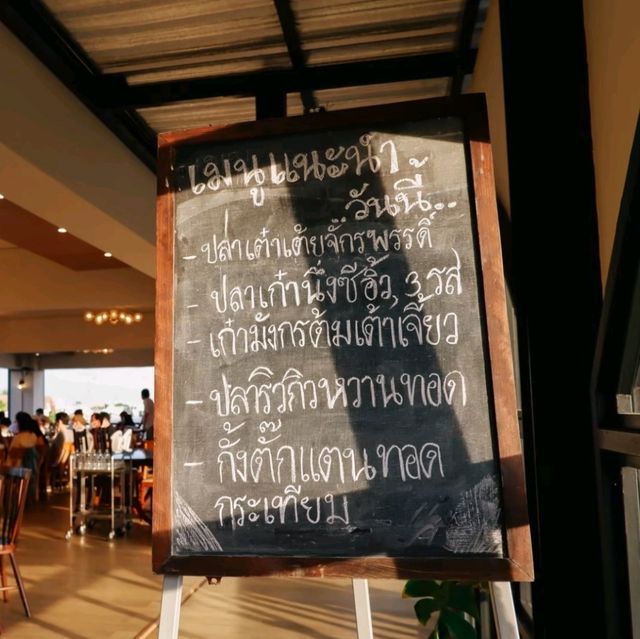 เมนูแนะนำ
วันนี้...
- ปลาเต๋าเต้ยจักรพรรดิ์
- ปลาเก๋านึ่งซีอิ้ว, 3 รส
- เก๋ามังกรต้มเต้าเจี้ยว
- ปลาริวกิวหวานทอด
- กั้งตั๊กแตนทอด
กระเทียม